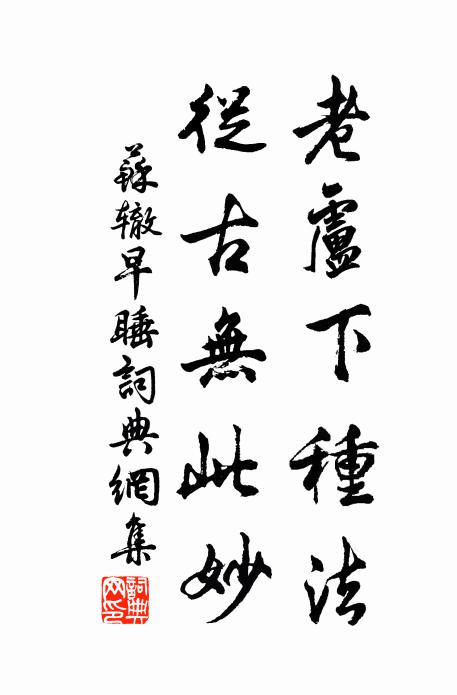 老盧下種法
從古無此妙
蘇辙早睡詞典網集
詞典網印